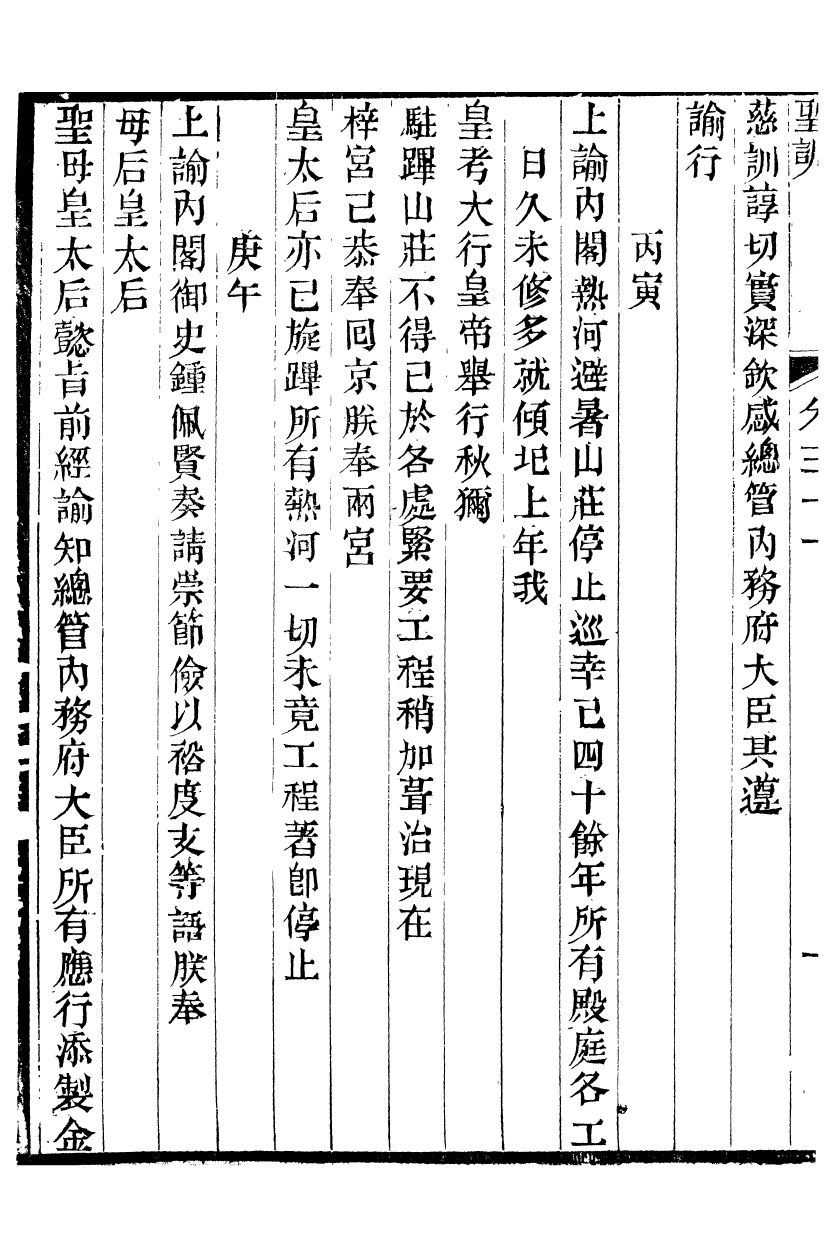 聖訓
慈訓諄切實深欽感總管內務府大臣其遵
諭行
丙寅
上諭內閣熱河避暑山莊停止巡幸已四十餘年所有殿庭各工
日久未修多就傾圮上年我
皇考大行皇帝舉行秋獮
駐蹕山莊不得已於各處緊要工程稍加葺治現在
梓宮已恭奉回京朕奉兩宮
皇太后亦已旋蹕所有熱河一切未竟工程著即停止
庚午
上諭內閣御史鍾佩賢奏請崇節儉以裕度支等語朕奉
母后皇太后
聖母皇太后懿旨前經諭知總管內務府大臣所有應行添製金